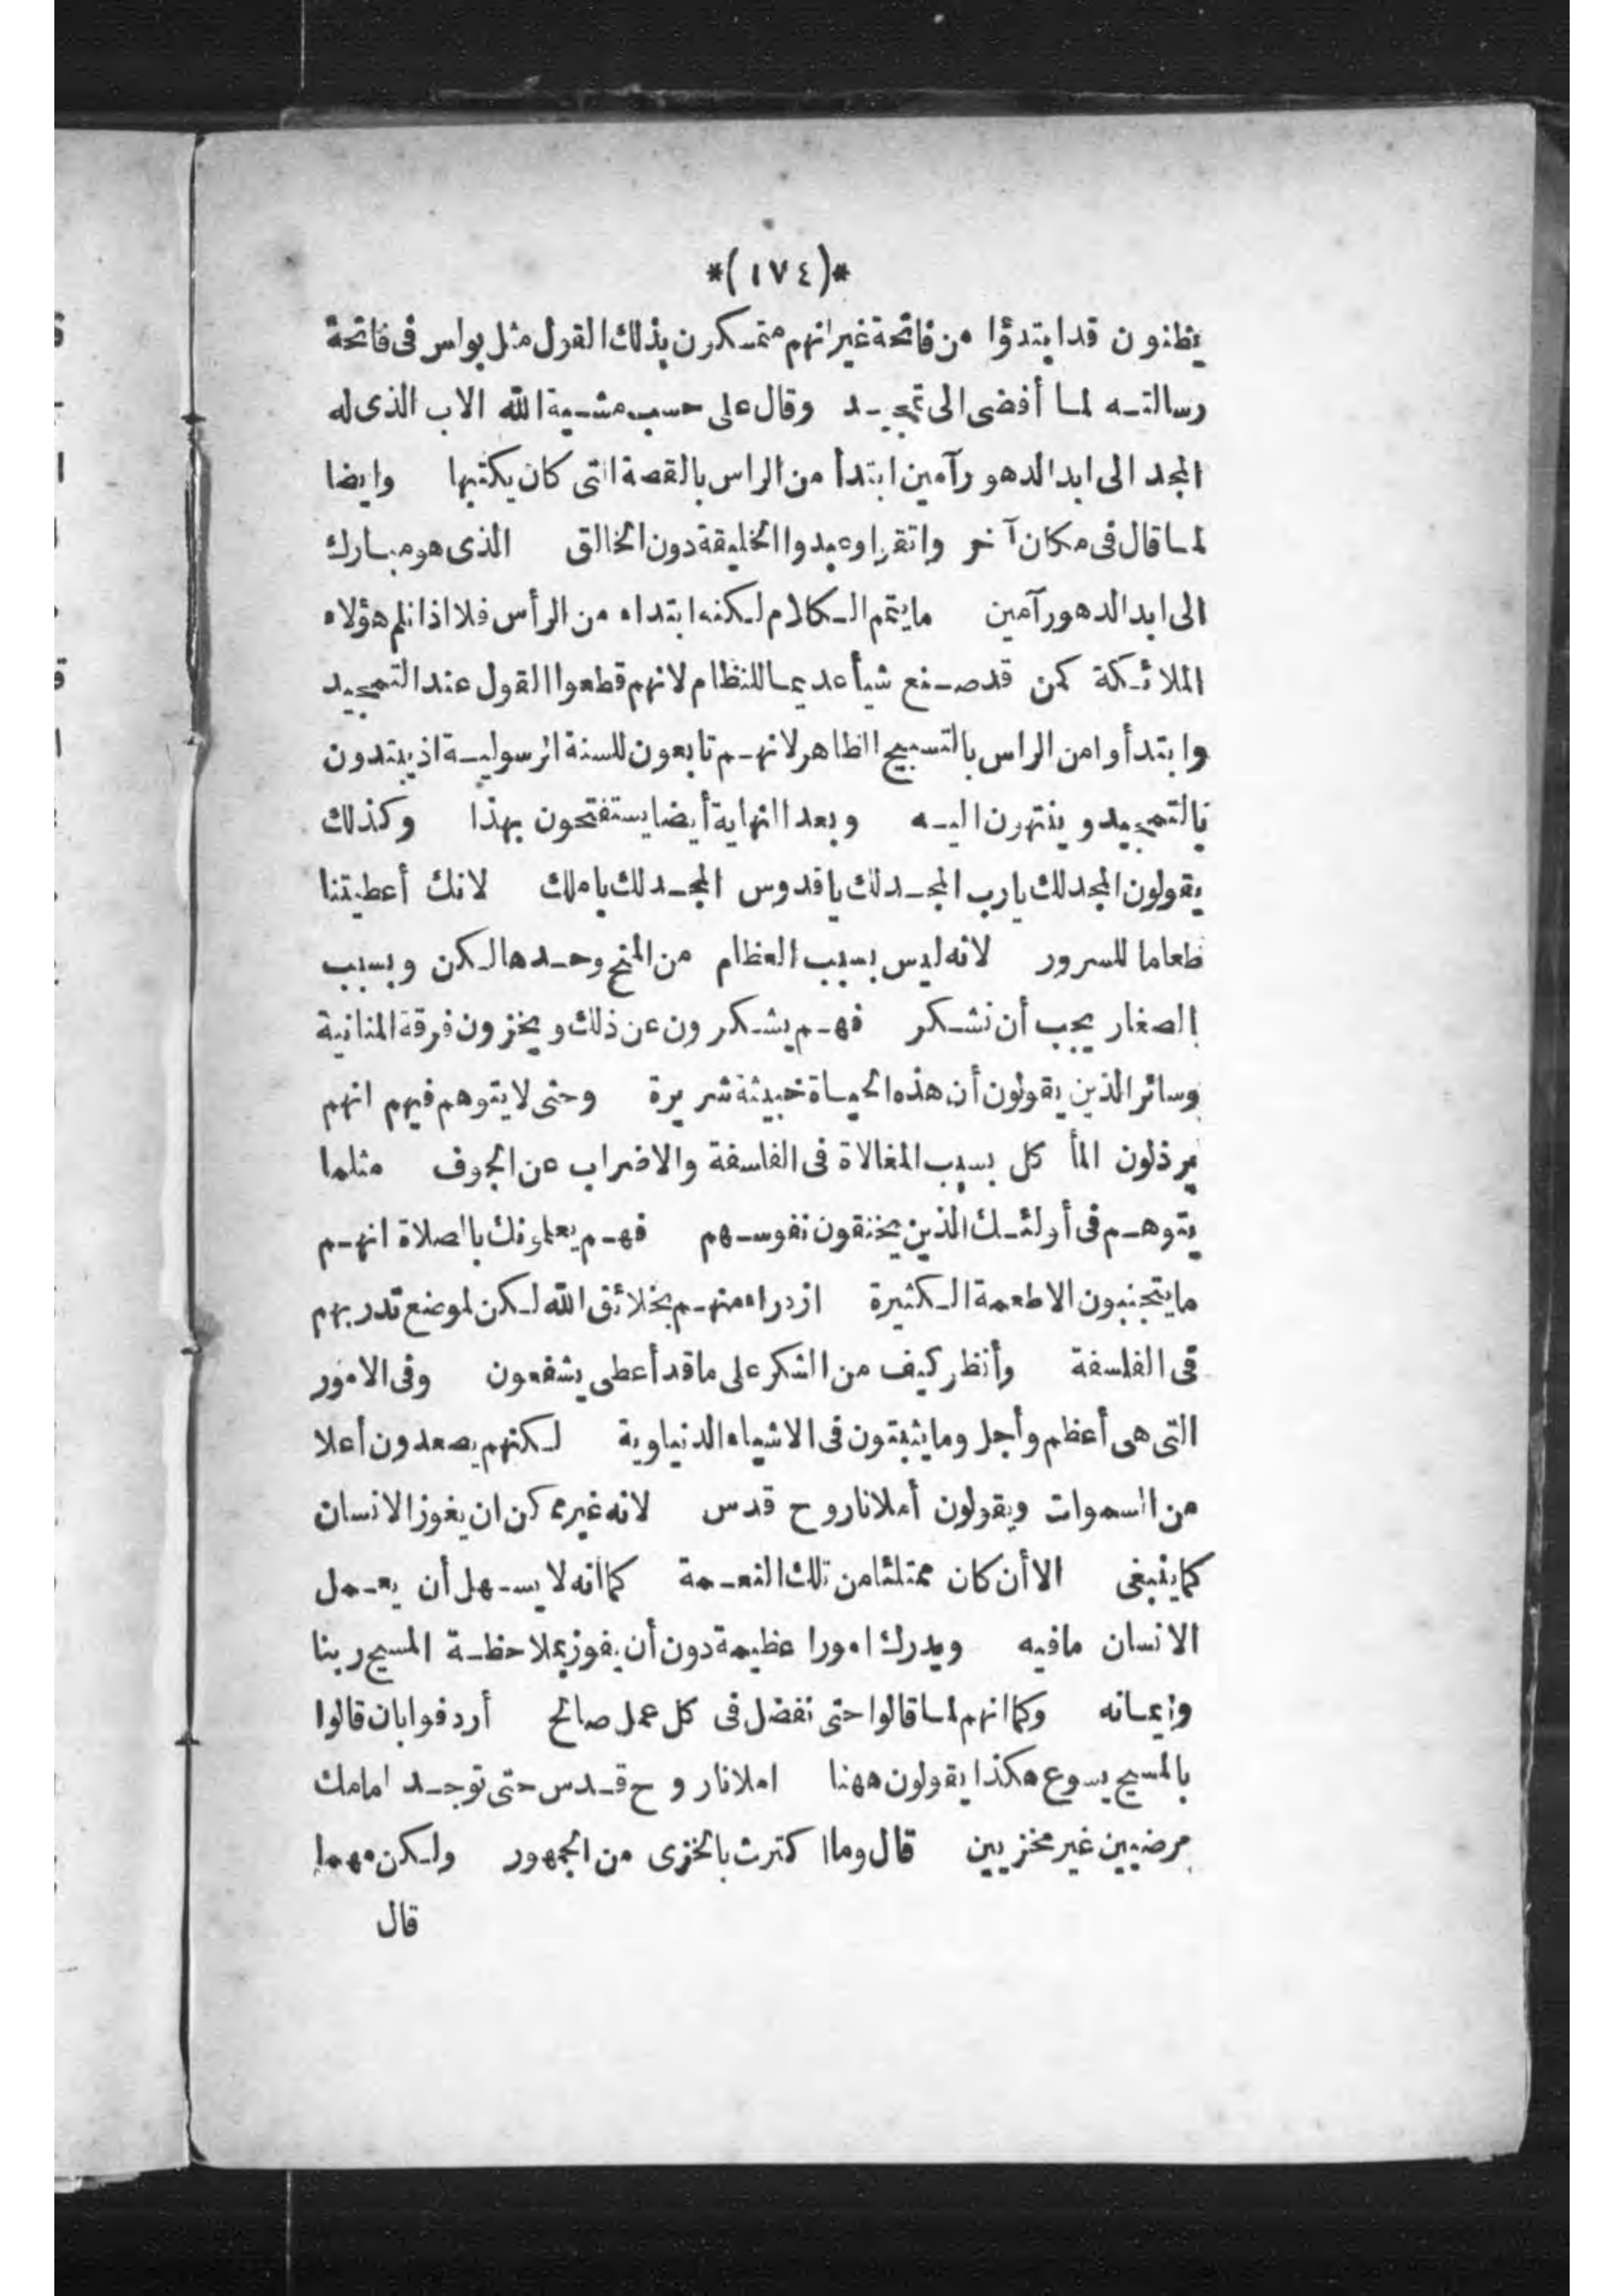 *(١٧٤)*
يظنون قد ابتدؤا من فاتحة غير انهم متمسكون بذلك القول مثل بولس فى فاتحة
رسالته لما أفضى الى تمجيد وقال على حسب مشية الله الاب الذى له
المجد الى ابد الدهور آمين ابتدأ من الراس بالقصة التى كان يكتبها وايضا
لما قال فى مكان آخر واتقوا وعبدوا الخليقة دون الخالق الذى هو مبارك
الى ابد الدهور آمين مايتم الكلام لكنه ابتداه من الرأس فلا اذا نلم هؤلاه
الملائكة كمن قد صنع شيأ عديما للنظام لانهم قطعوا القول عند التمجيد
وابتدأوا من الراس بالتسبيح الظاهر لانهم تابعون للسنة الرسولية اذ يبتدون
بالتمجيد وينتهون اليه وبعد النهاية أيضا يستفتحون بهذا وكذلك
يقولون المجد لك يارب المجد لك ياقدوس المجد لك ياملك لانك أعطيتنا
طعاما للسرور لانه ليس بسبب العظام من المنح وحدها لكن وبسبب
الصغار يجب أن نشكر فهم يشكرون عن ذلك ويخزون فرقة المنانية
وسائر الذين يقولون أن هذه الحياة خبيثة شريرة وحتى لا يتوهم فيهم انهم
يرذلون المأ كل بسبب المغالاة فى الفلسفة والاضراب عن الجوف مثلما
يتوهم فى أولئك الذين يخنقون نفوسهم فهم يعلمونك بالصلاة انهم
ما يتجنبون الاطعمة الكثيرة ازدراء منهم بخلائق الله لكن لموضع تدربهم
فى الفلسفة وأنظر كيف من الشكر على ماقد أعطى يشفعون وفى الامور
التى هى أعظم وأجل وما يثبتون فى الاشياه الدنياوية لكنهم يصعدون أعلا
من السموات ويقولون أملانا روح قدس لانه غير ممكن ان يفوز الانسان
كما ينبغى الا أن كان ممتلئا من تلك النعمة كما انه لا يسهل أن يعمل
الانسان مافيه ويدرك امورا عظيمة دون أن يفوز بملاحظة المسيح ربنا
وايمانه وكما انهم لما قالوا حتى نفضل فى كل عمل صالح أردفوا بان قالوا
بالمسيح يسوع هكذا يقولون ههنا املانا روح قدس حتى توجد امامك
مرضيين غير مخزيين قال وما اكترث بالخزى من الجمهور ولكن مهما
قال